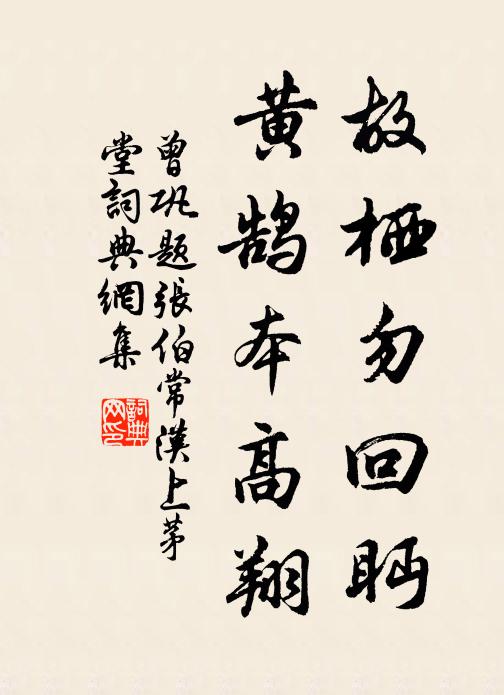 故栖勿回眄
黄鹄本高翔
曾巩题張伯常漢上茅
堂詞典網集
詞典
网印